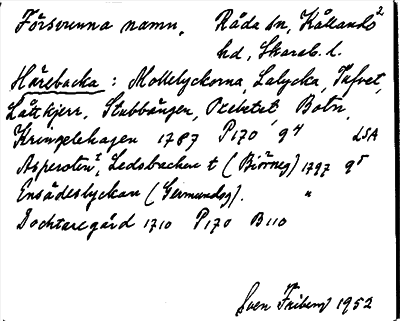 Försvunna namn, Råda sn, Kållands 2
hd, Skarab. l.
Härebacka : Mollelyckorna, Lalycka, Tufvet,
Lått kjerr, Stubbängen, Oxebetet, Botn,
Kringlehagen 1787 P170 9⁴ LSA
Asperoten, Ledsbacken t (Biörneg) 1797 9⁵
Ensådeslyckan (Germundsg). "
Dochtaregård 1710 P170 B110
Sven Friberg 1952